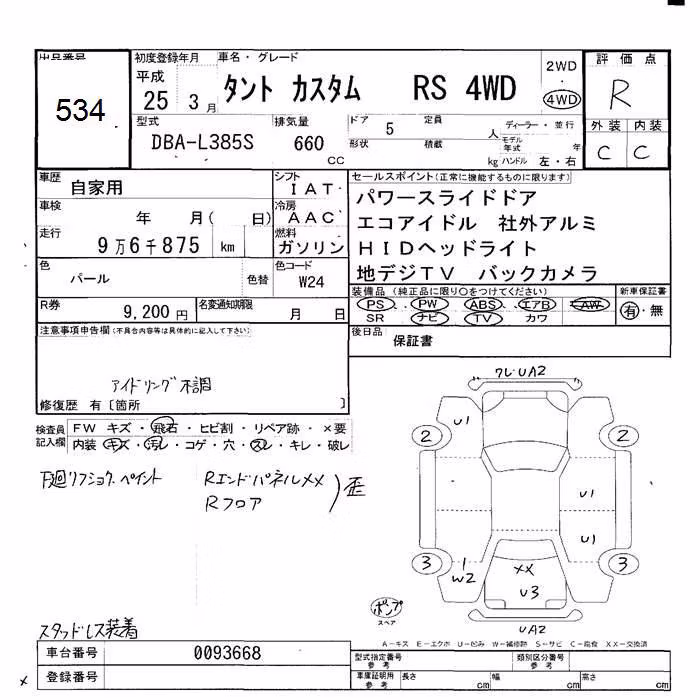 出品番号
534
初度登録年月
平成
25 3月
車名・グレード
タント カスタム RS 4WD
2WD
4WD
評価点
R
型式
DBA-L385S
排気量
660
CC
ドア 5 定員 人
形状 積載 kg
ディーラー・並行
モデル年式 年
ハンドル 左・右
外装 内装
C C
車歴
自家用
シフト
IAT
車検
年 月( 日)
冷房
AAC
走行
9万6千875 km
燃料
ガソリン
色
パール
色替
色コード
W24
R券
9,200円
名変通知期限
月 日
セールスポイント(正常に機能するものに限ります)
パワースライドドア
エコアイドル 社外アルミ
HIDヘッドライト
地デジTV バックカメラ
装備品(純正品に限り○をつけてください)
PS PW ABS エアB AW
SR ナビ TV カワ
新車保証書
有・無
後日品
保証書
注意事項申告欄(不具合内容等は具体的に記入して下さい)
アイドリング不調
修復歴 有〔箇所 〕
検査員記入欄
FW キズ・飛石・ヒビ割・リペア跡・×要
内装 キズ・汚レ・コゲ・穴・スレ・キレ・破レ
下廻リフショク、ペイント
RエンドパネルXX
Rフロア
)歪
クレ・UA2
U1
2 2
U1
U1
3 3
1
W2
XX
U3
UA2
ポンプ
スペア
スタッドレス装着
A-キズ E-エクボ U-凹み W-補修跡 S-サビ C-腐食 XX-交換済
車台番号
0093668
登録番号
型式指定番号
参考
類別区分番号
参考
車庫証明用
参考
長さ cm 幅 cm 高さ cm